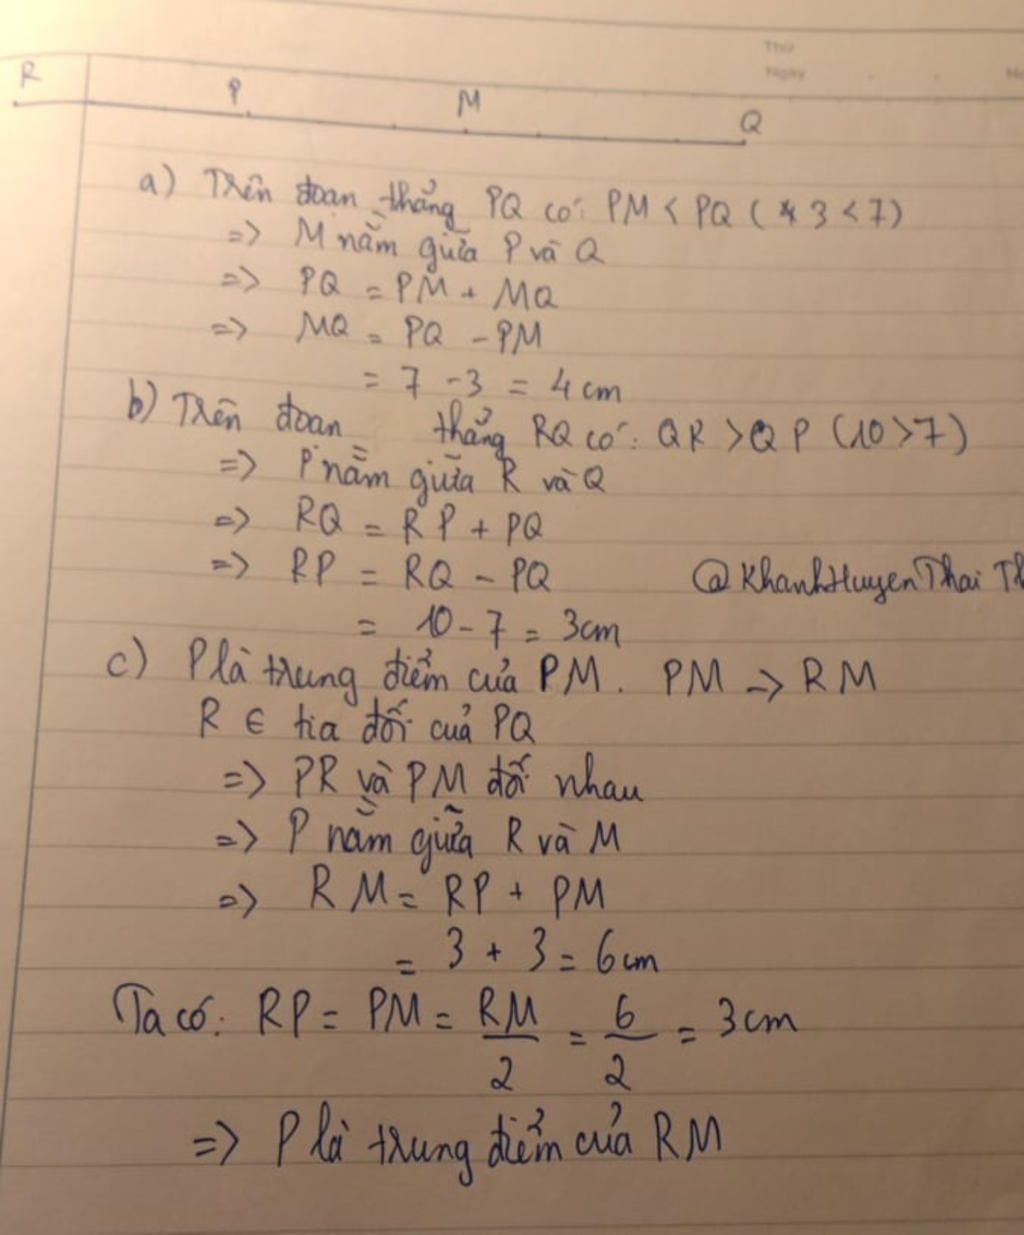 Thứ
Ngày
No
R P M Q
a) Trên đoan thẳng PQ có: PM < PQ ( 3 < 7)
=> M nằm giữa P và Q
=> PQ = PM + MQ
=> MQ = PQ - PM
= 7 - 3 = 4 cm
b) Trên đoan thẳng RQ có: QR > QP (10 > 7)
=> P nằm giữa R và Q
=> RQ = RP + PQ
=> RP = RQ - PQ
@KhanhHuyenThai Th
= 10 - 7 = 3cm
c) P là trung điểm của PM. PM -> RM
R ∈ tia đối của PQ
=> PR và PM đối nhau
=> P nằm giữa R và M
=> RM = RP + PM
= 3 + 3 = 6 cm
Ta có: RP = PM = RM/2 = 6/2 = 3 cm
=> P là trung điểm của RM